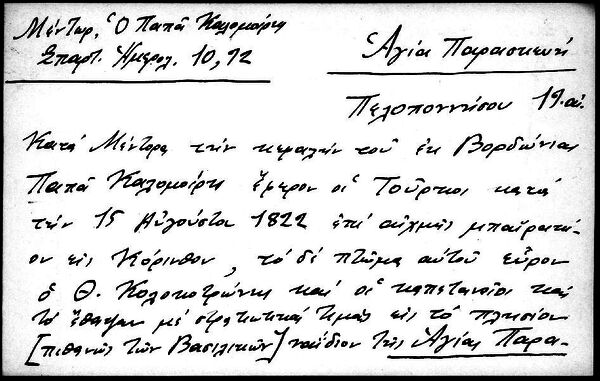 Μέντωρ, Ὁ Παπᾶ Καλομοίρης
Σπαρτ. Ἡμερολ. 10, 92
Ἁγία Παρασκευή
Πελοποννήσου 19. αἰ.
Κατά Μέντορα τήν κεφαλήν τοῦ ἐκ Βορδώνιας
Παπᾶ Καλομοίρη ἔφερον οἱ Τοῦρκοι κατά
τήν 15 Αὐγούστου 1822 ἐπί αἰχμῆς
ον εἰς Κόρινθον, τό δέ πτῶμα αὐτοῦ εὗρον
ὁ Θ. Κολοκοτρώνης καί οἱ καπεταναῖοι καί
τό ἔθαψαν μέ στρατιωτικάς τιμάς εἰς τό πλησίον
[πιθανῶς τῶν Βασιλικῶν] ναΐδιον τῆς Ἁγίας Παρα-